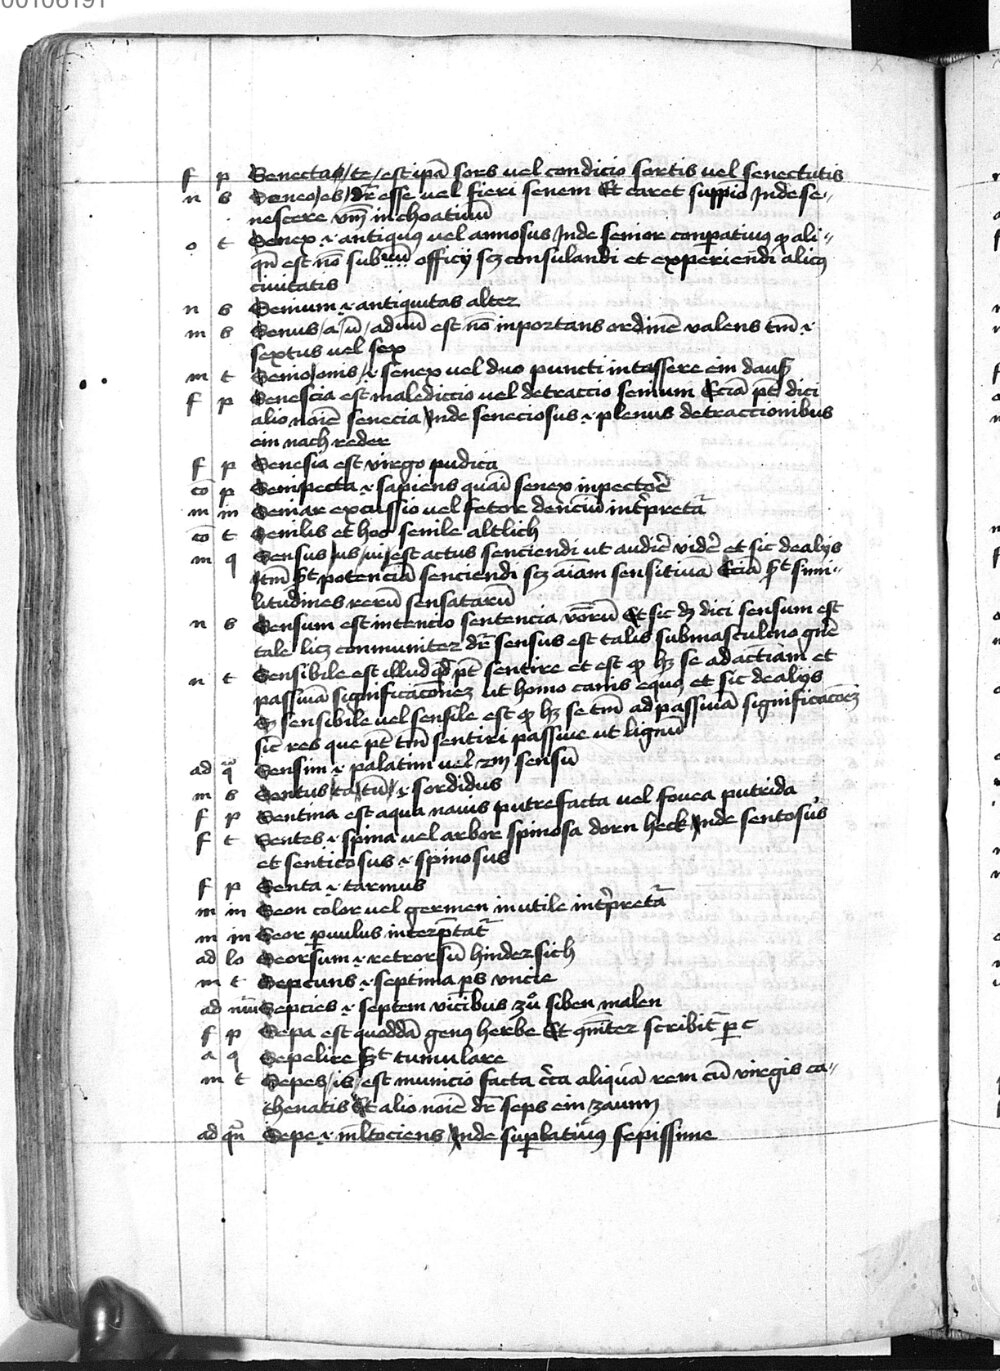 00106191
f p Senectas/te/est ip̄a sors vel condicio sortis vel senectutis
n s Seneo/es/ dr̄ esse vel fieri senem Et caret supp̄io Inde se⸗
nescere vm̄ inchoatiuū
o t Senex .i. antiquus vel annosus Inde senior conpatiuus q ali⸗
qn̄ est nō officij scz consulandi et experiendi alicuius
ciuitatis
n s Senium .i. antiquitas alter
m s Senus/a/ū/ adiuū est nō inportans ordinē valens tm̄ .i.
sextus vel sex
m t Senio/onis/ .i. senex vel duo puncti in tassere ein daus
f p Senescia est malediccio vel detraccio senium Eciā pt̄ dici
alio noīe senecia Inde seneciosus .i. plenus detraccionibus
ein nach reder
f p Senesia est virgo pudica
cō p Senipecta .i. sapiens quasi senex in pectorē
m in Seniar excussio vel fetor denciū intp̄retā
cō t Senilis et hoc senile altlich
m q Sensus/us/ui/ est actus senciendi ut audiē vidē et sic de alijs
Itm̄ potenciā senciendi scz aīam sensitiuā Eciā simi⸗
litudines rerū sensatarū
n s Sensum est intencio sentencia vōrū Et sic dici sensum est
tale licz communiter dr̄ sensus est talis sub masculino gn̄e
n t Sensibile est illud qd̄ pt̄ sentire et est qp hz se ad actiuam et
passiuā significacōnez ut homo canis equus et sic de alijs
Sz sensibile vel sensile est qp hz se tm̄ ad passiuā significacōez
sic res que pt̄ tm̄ sentiri passiue ut lignū
ad q̄ Sensim .i. palatim vel sensū
m s Sentus/ta/tū/ .i. sordidus
f p Sentina est aqua nauis putrefacta vel fouea putrida
f t Sentes .i. spina vel arbor spinosa dorn heck Inde sentosus
et senticosus .i. spinosus
f p Senta .i. tarmus
m in Seon color vel germen inutile intp̄retā
m in Seor p̱uulus interp̄tat̄
ad lo Seorsum .i. retrorsū hindersich
m t Sepcuns .i. septima ps vncie
ad nm̄ Sepcies .i. septem vicibus zů siben malen
f p Sepa est quoddā genus herbe Et qm̄ter scribit̄ p̱ c
a q Sepelire tumulare
m t Sepes/is/ est municio facta cc̄a aliquā rem cū virgis ca⸗
thenatis Et alio noīe dr̄ seps ein zaunn
ad qn̄ Sepe .i. ml̄tociens Inde sup̱latiuus sepissime